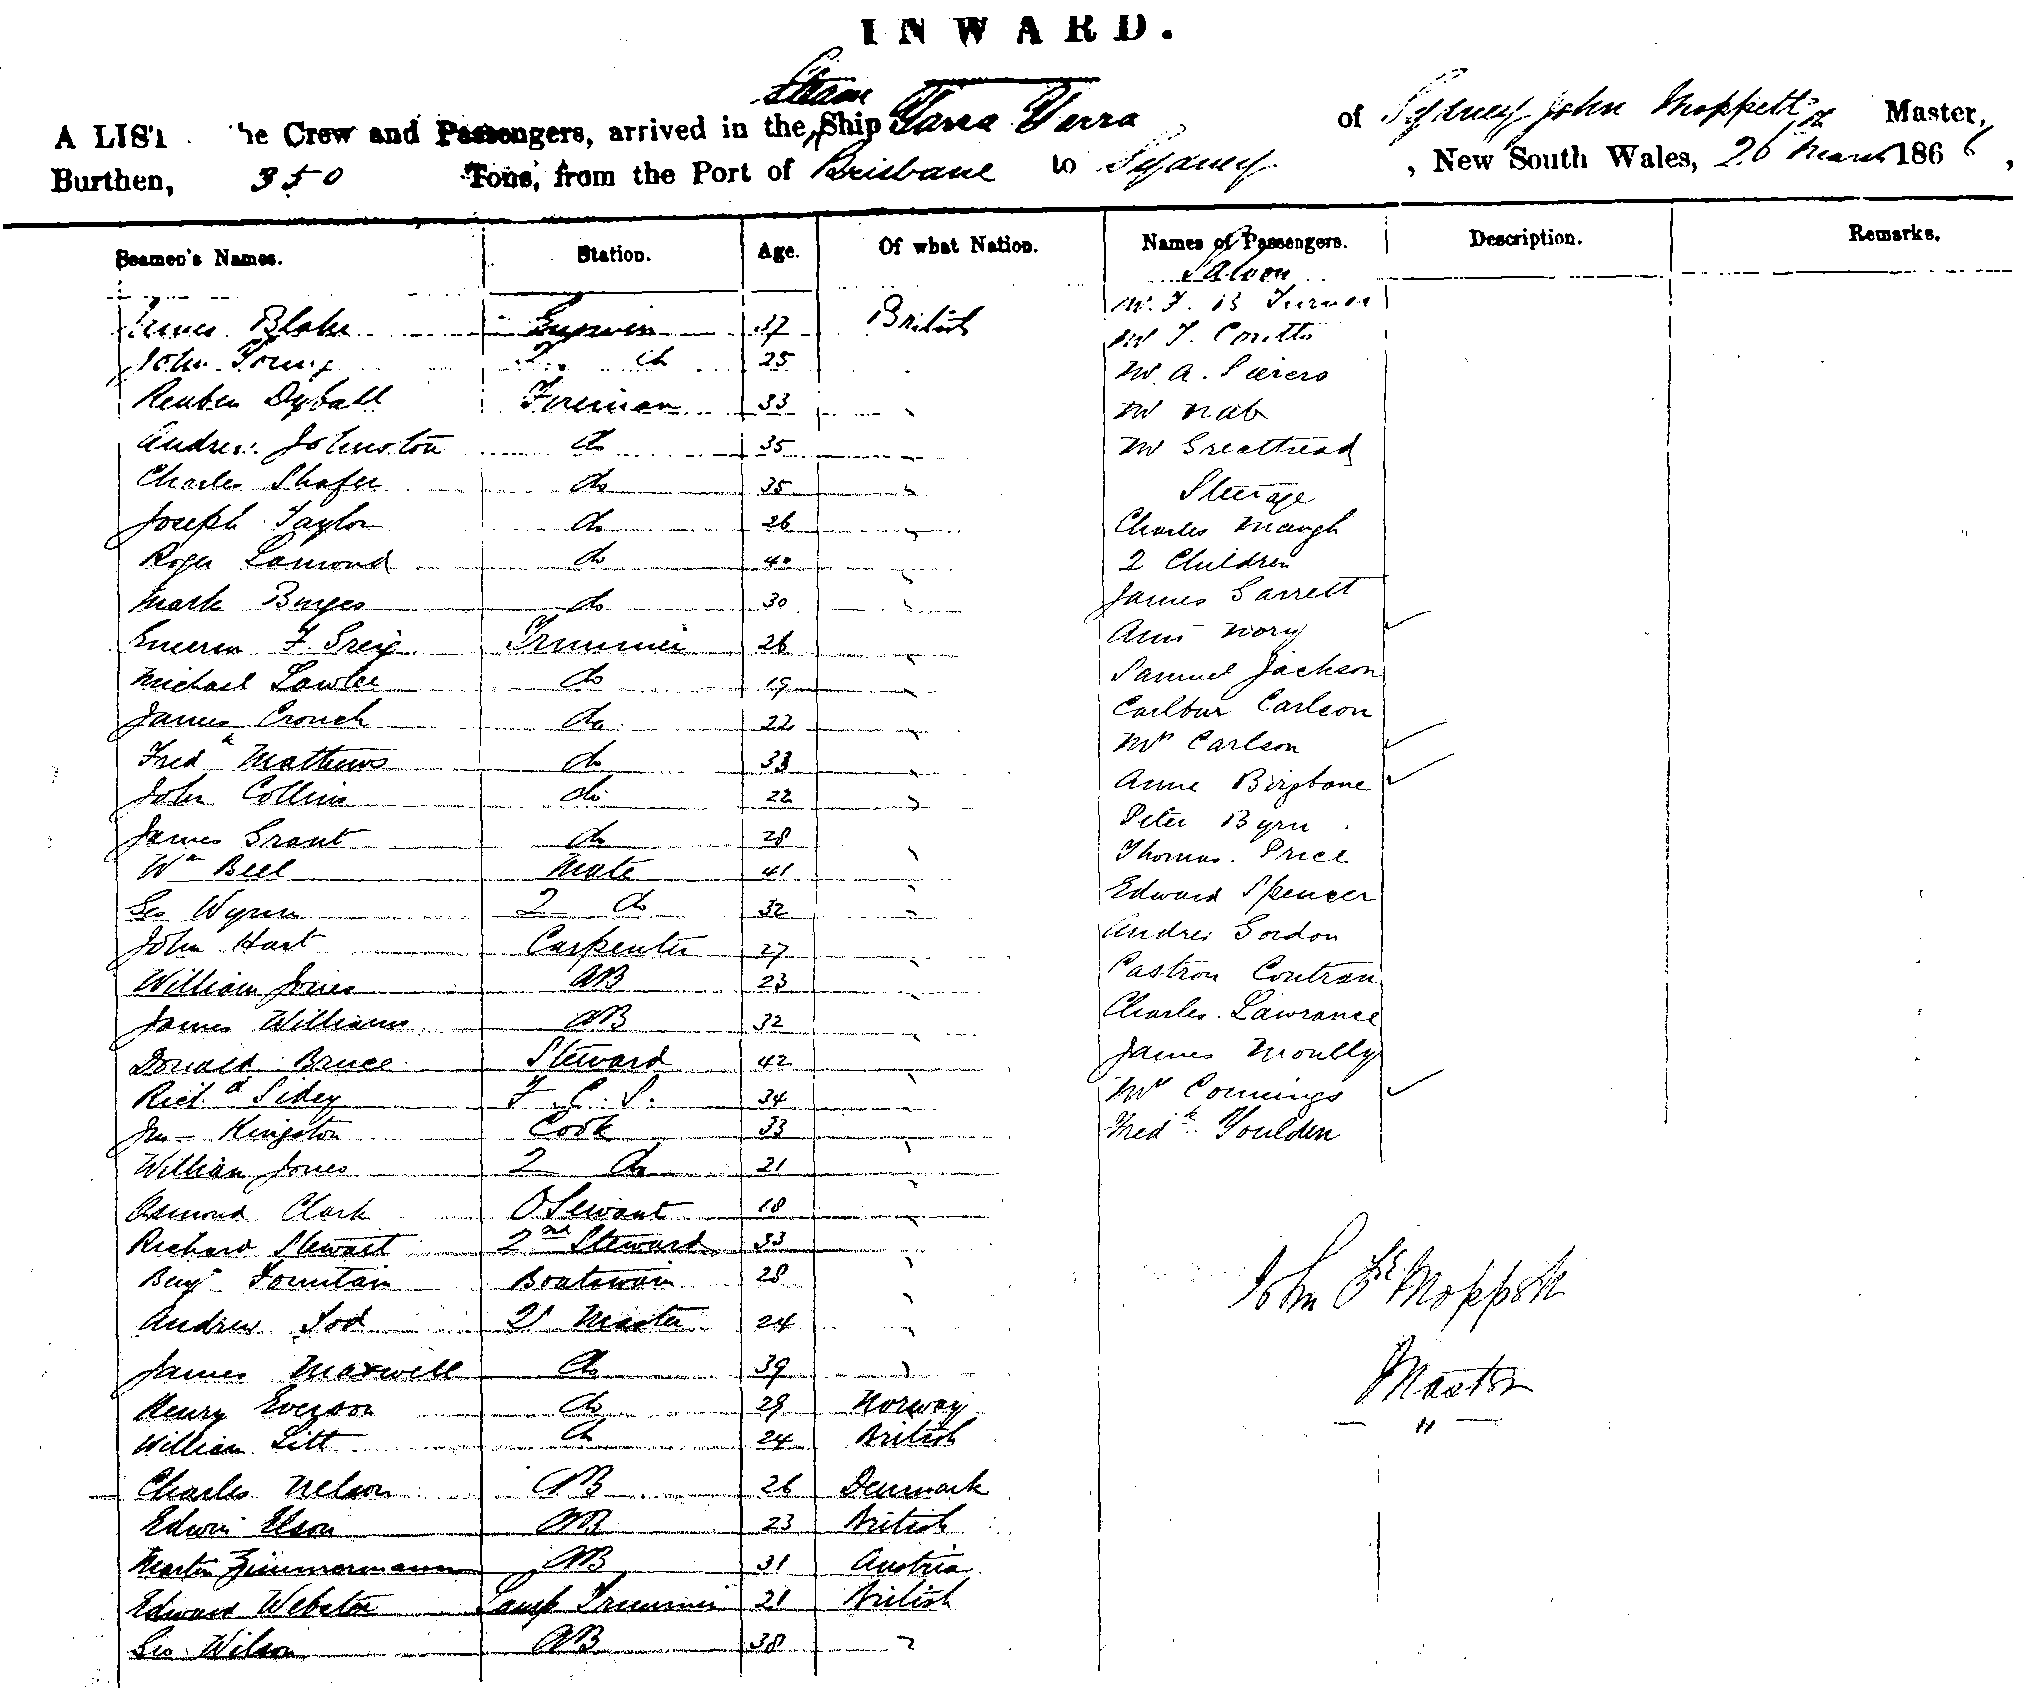 INWARD.
A LIST he Crew and Passengers, arrived in the Steam Ship Yarra Yarra of Sydney John Moppett Master,
Burthen, 350 Tons, from the Port of Brisbane to Sydney , New South Wales, 26 March 1866 ,
Seamen's Names. Station. Age. Of what Nation. Names of Passengers. Description. Remarks.
Saloon
James Blake 37 British Mr. J. B Turner
John Young 2 do 25 Mr J. Coutts
Reuben Dyball Fireman 33 Mr. A.
Andrew Johnston do 35 Mr Nab
Charles Shafer do 35 Mr Greathead
Joseph Taylor do 26 Steerage
Roger Lamond do 40 Charles Maugh
Mark Burges do 30 2 Children
F. Greig Trimmer 26 James Garrett
Michael Lawler do 19 Ann Mory
James Crouch do 22 Samuel Jackson
Fredk Mathews do 33 Carlson
John Collins do 22 Mrs Carlson
James Grant do 28 Anne
Wm Bell Mate 41 Peter Byrn
Geo Wynn 2 do 32 Thomas Price
John Hart Carpenter 27 Edward Spencer
William Jones AB 23 Andrew Gordon
James Williams AB 32 Castron Contran
Donald Bruce Steward 42 Charles Lawrance
Richd Sidey F. C. S. 34 James Moully
Jno Kingston Cook 33 Mrs Connings
William Jones 2 do 21 Fredk Youlden
Osmond Clark 18
Richard Stewart 2nd Steward 33
Benjn Fountain Boatswain 28
Andrew Tod Q Master 24
James Maxwell do 39
Henry Everson do 29 Norway
William Litt do 24 British
Charles Nelson AB 26 Denmark
Edwin Elson AB 23 British
Martin Zimmermann AB 31 Austria
Edward Webster Lamp Trimmer 21 British
Geo Wilson AB 38 "
John Moppett
Master